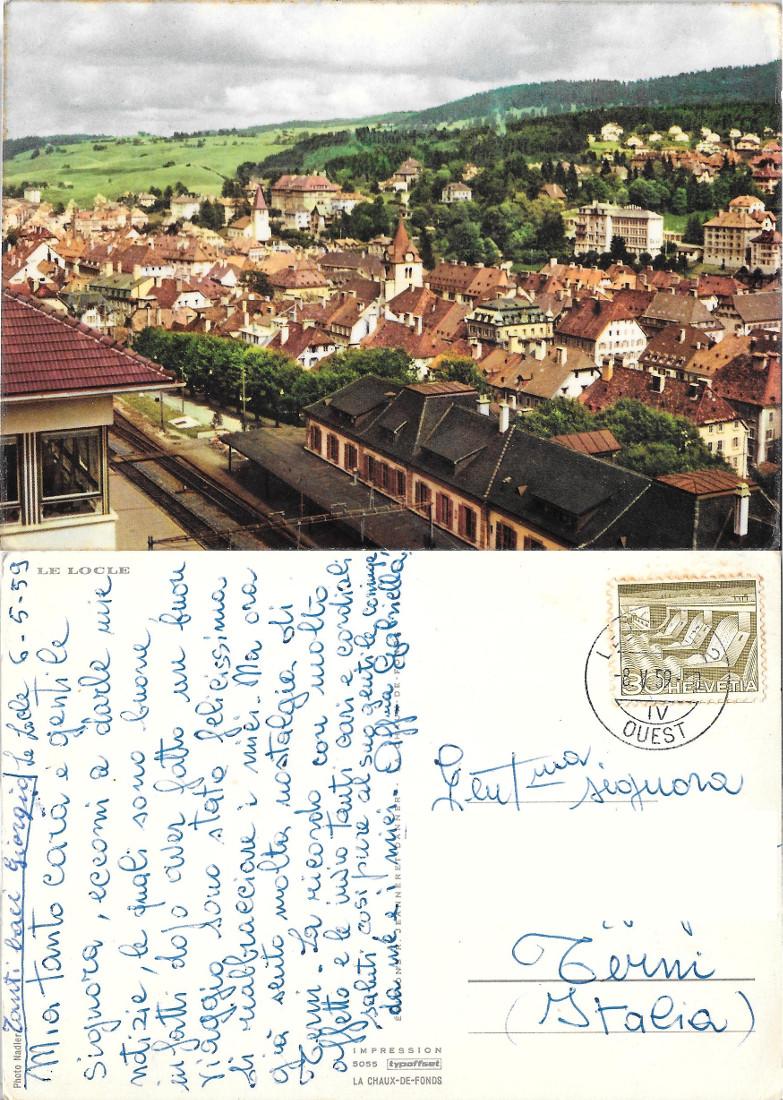 LE LOCLE
Le Locle 6-5-59
Mia tanto cara e gentile
Signora, eccomi a darle mie
notizie, le quali sono buone,
infatti dopo aver fatto un buon
viaggio sono stata felicissima
di riabbracciare i miei. Ma ora
già sento molta nostalgia di
Terni. La ricordo con molto
affetto e le invio tanti cari e cordiali
saluti così pure al suo gentile
da me e i miei. Aff.ma Gabriella
Tanti baci Giorgio
Photo Nadler
IMPRESSION
5055 typoffset
LA CHAUX-DE-FONDS
30 HELVETIA
-8.V.59
IV
OUEST
Gent.ma
signora
Terni
(Italia)